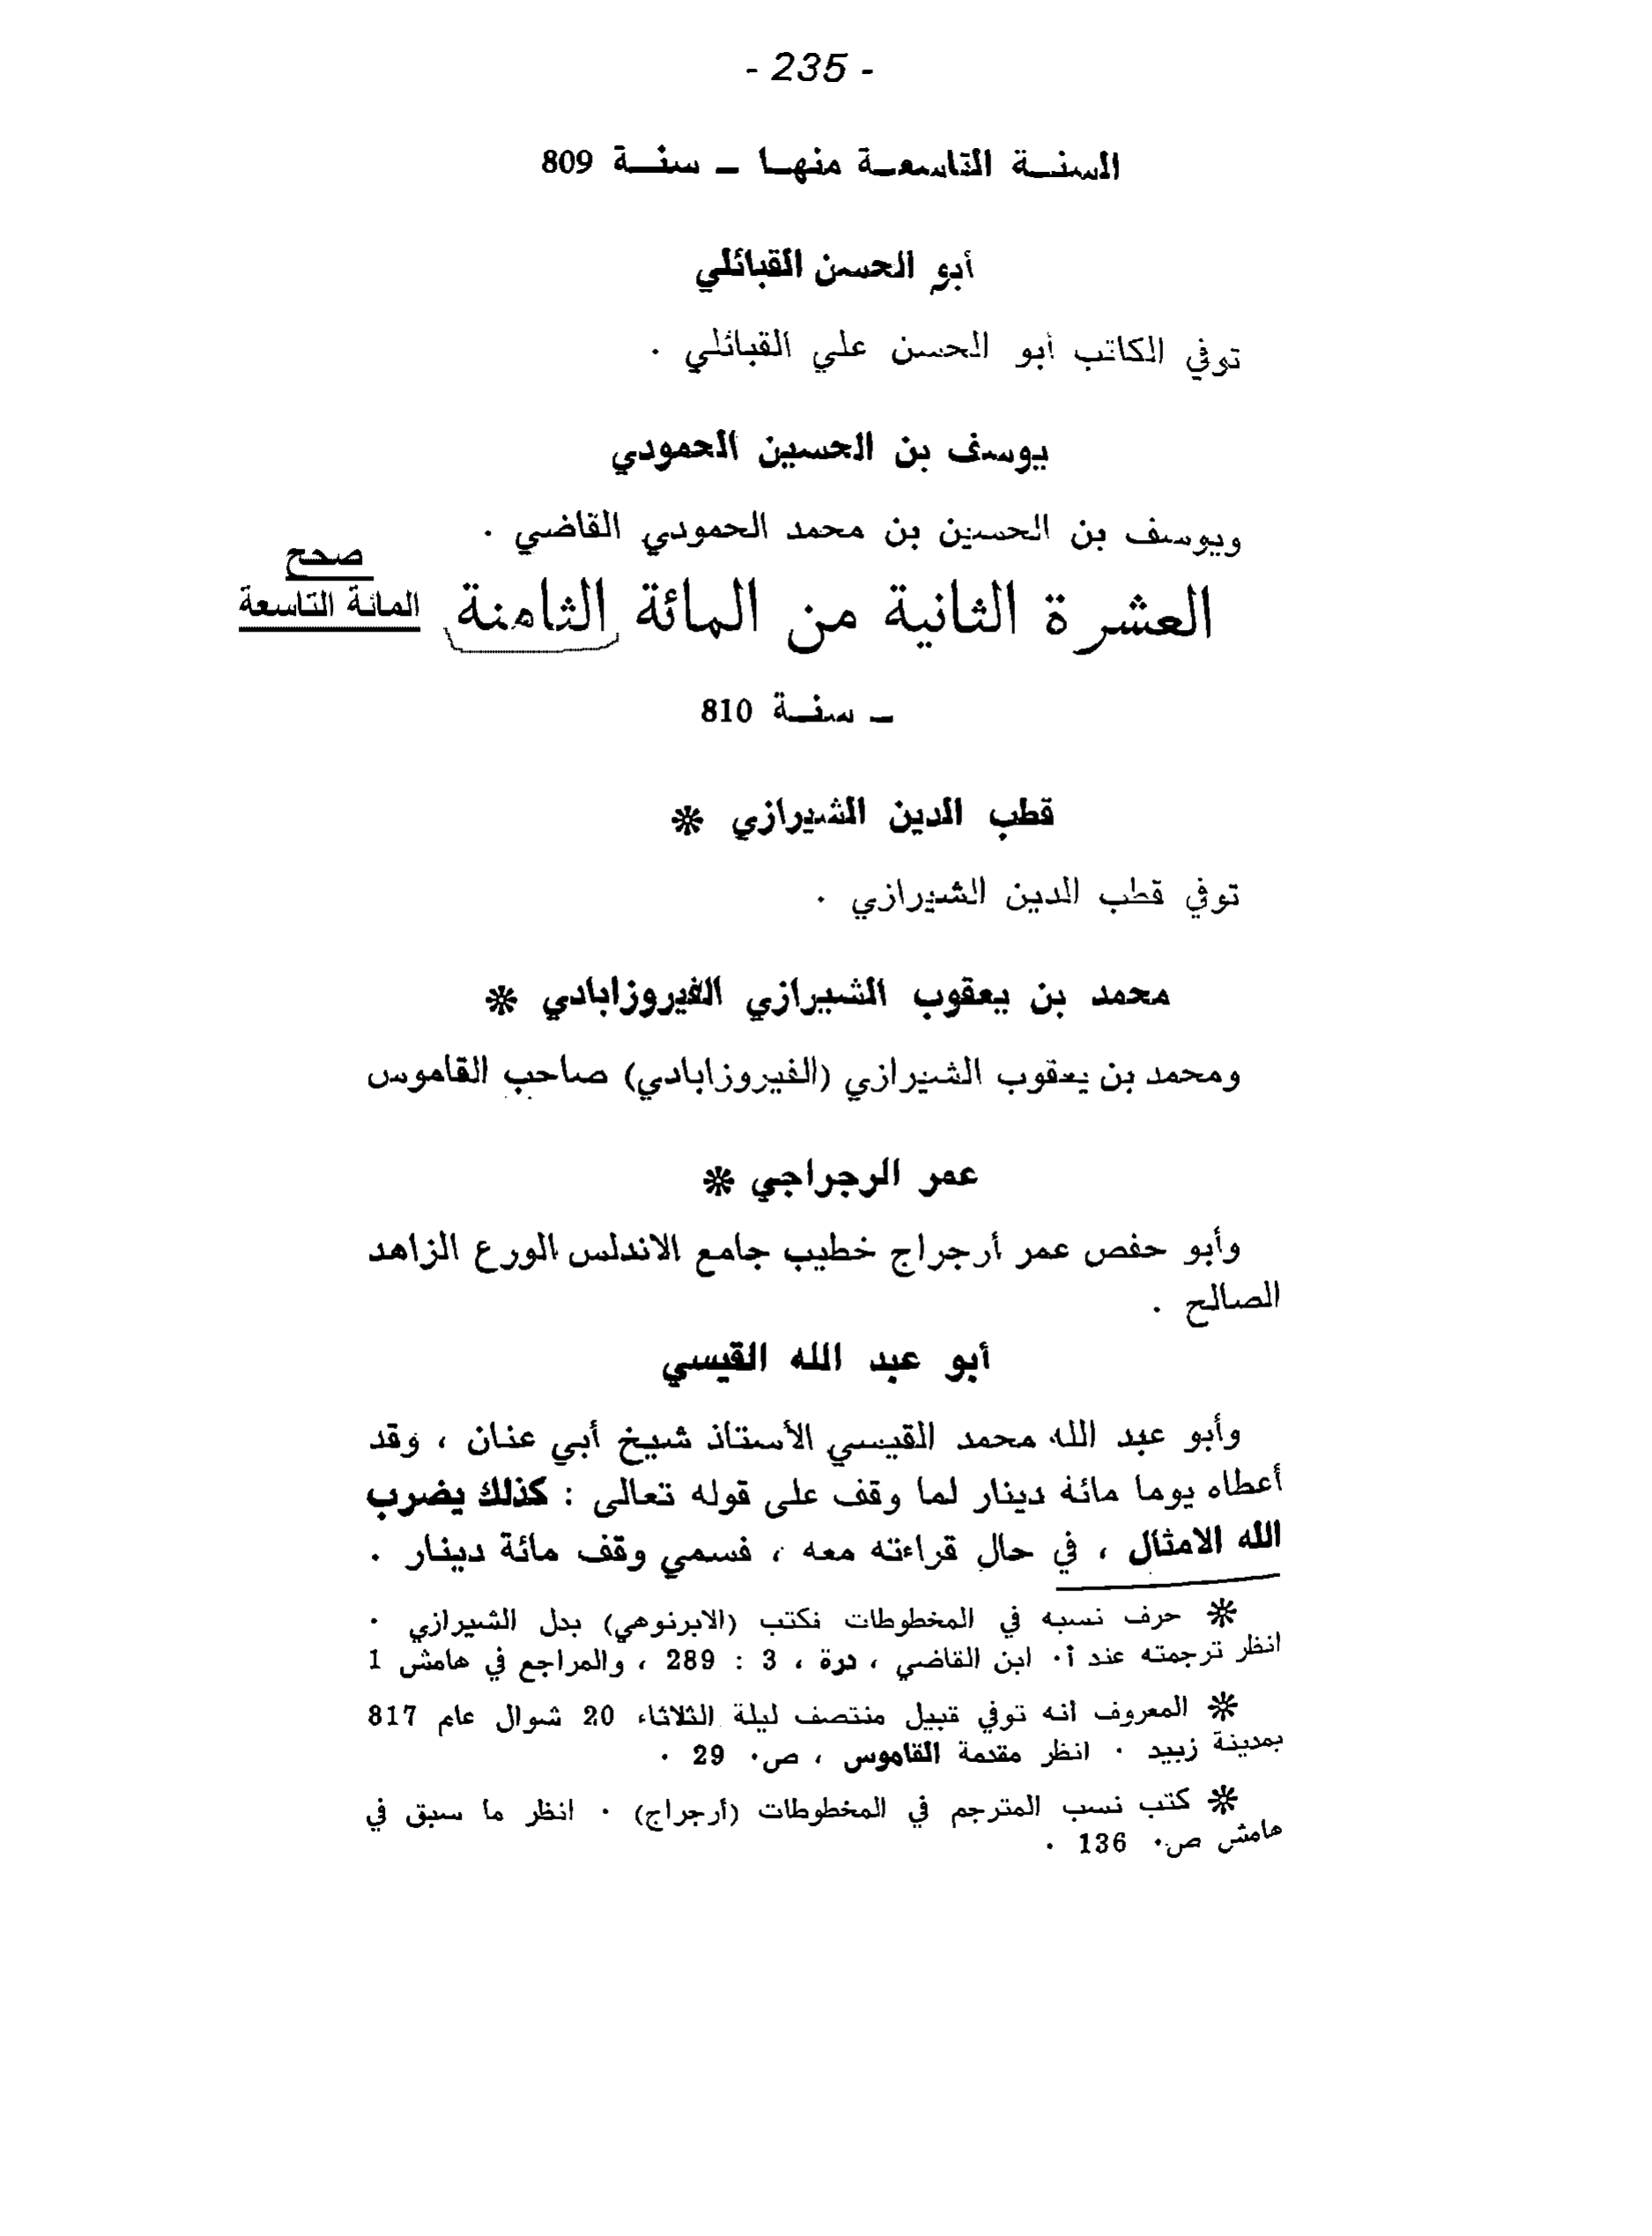 - 235 -
السنة التاسعة منها – سنة 809
أبو الحسن القبائلي
توفي الكاتب أبو الحسن علي القبائلي .
يوسف بن الحسين الحمودي
ويوسف بن الحسين بن محمد الحمودي القاضي .
صحح
العشرة الثانية من المائة الثامنة المائة التاسعة
– سنة 810
قطب الدين الشيرازي *
توفي قطب الدين الشيرازي .
محمد بن يعقوب الشيرازي الفيروزابادي *
ومحمد بن يعقوب الشيرازي (الفيروزابادي) صاحب القاموس
عمر الرجراجي *
وأبو حفص عمر أرجراج خطيب جامع الاندلس الورع الزاهد
الصالح .
أبو عبد الله القيسي
وأبو عبد الله محمد القيسي الأستاذ شيخ أبي عنان ، وقد
أعطاه يوما مائة دينار لما وقف على قوله تعالى : كذلك يضرب
الله الامثال ، في حال قراءته معه ، فسمي وقف مائة دينار .
* حرف نسبه في المخطوطات فكتب (الابرنوهي) بدل الشيرازي .
انظر ترجمته عند أ. ابن القاضي ، درة ، 3 : 289 ، والمراجع في هامش 1
* المعروف انه توفي قبيل منتصف ليلة الثلاثاء 20 شوال عام 817
بمدينة زبيد . انظر مقدمة القاموس ، ص. 29 .
* كتب نسب المترجم في المخطوطات (أرجراج) . انظر ما سبق في
هامش ص. 136 .